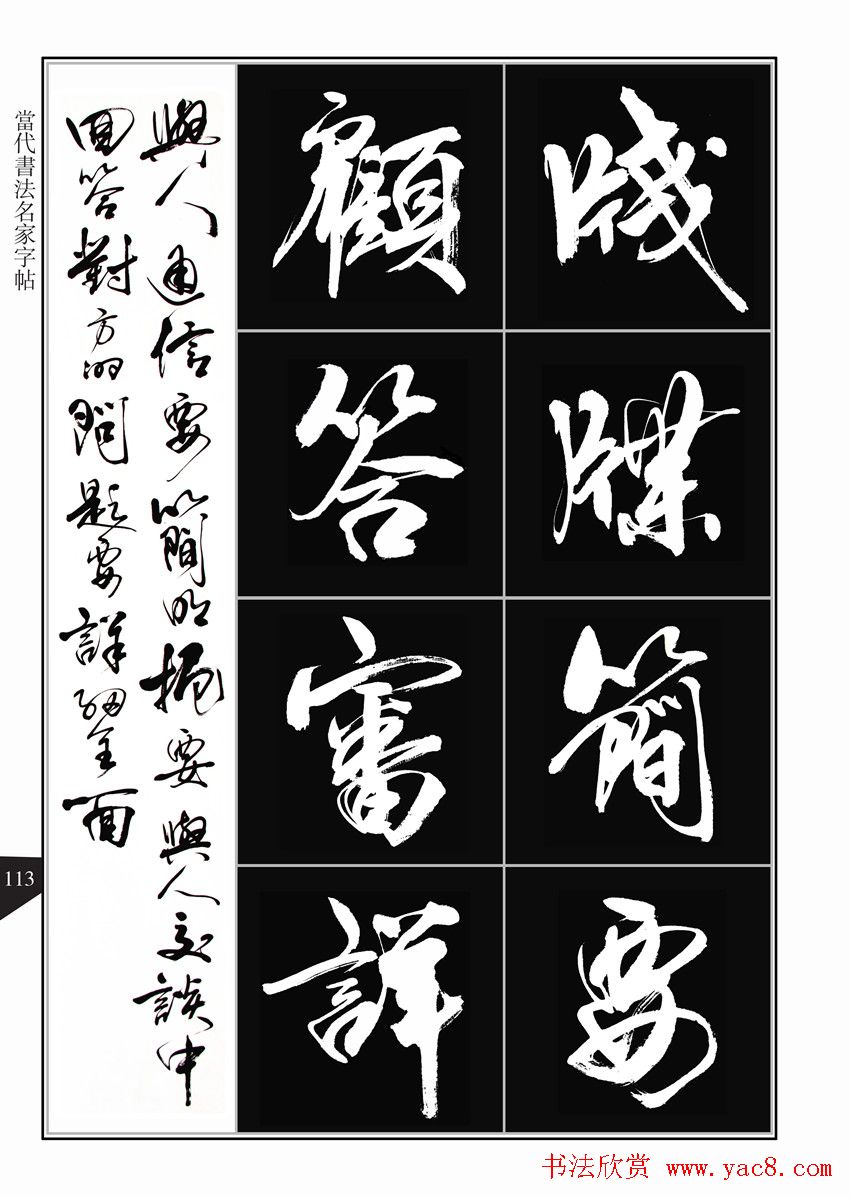 當代書法名家字帖
牋牒簡要
顧答審詳
與人通信要簡明扼要與人交談中
回答對方的問題要詳細全面
113
书法欣赏 www.yac8.com